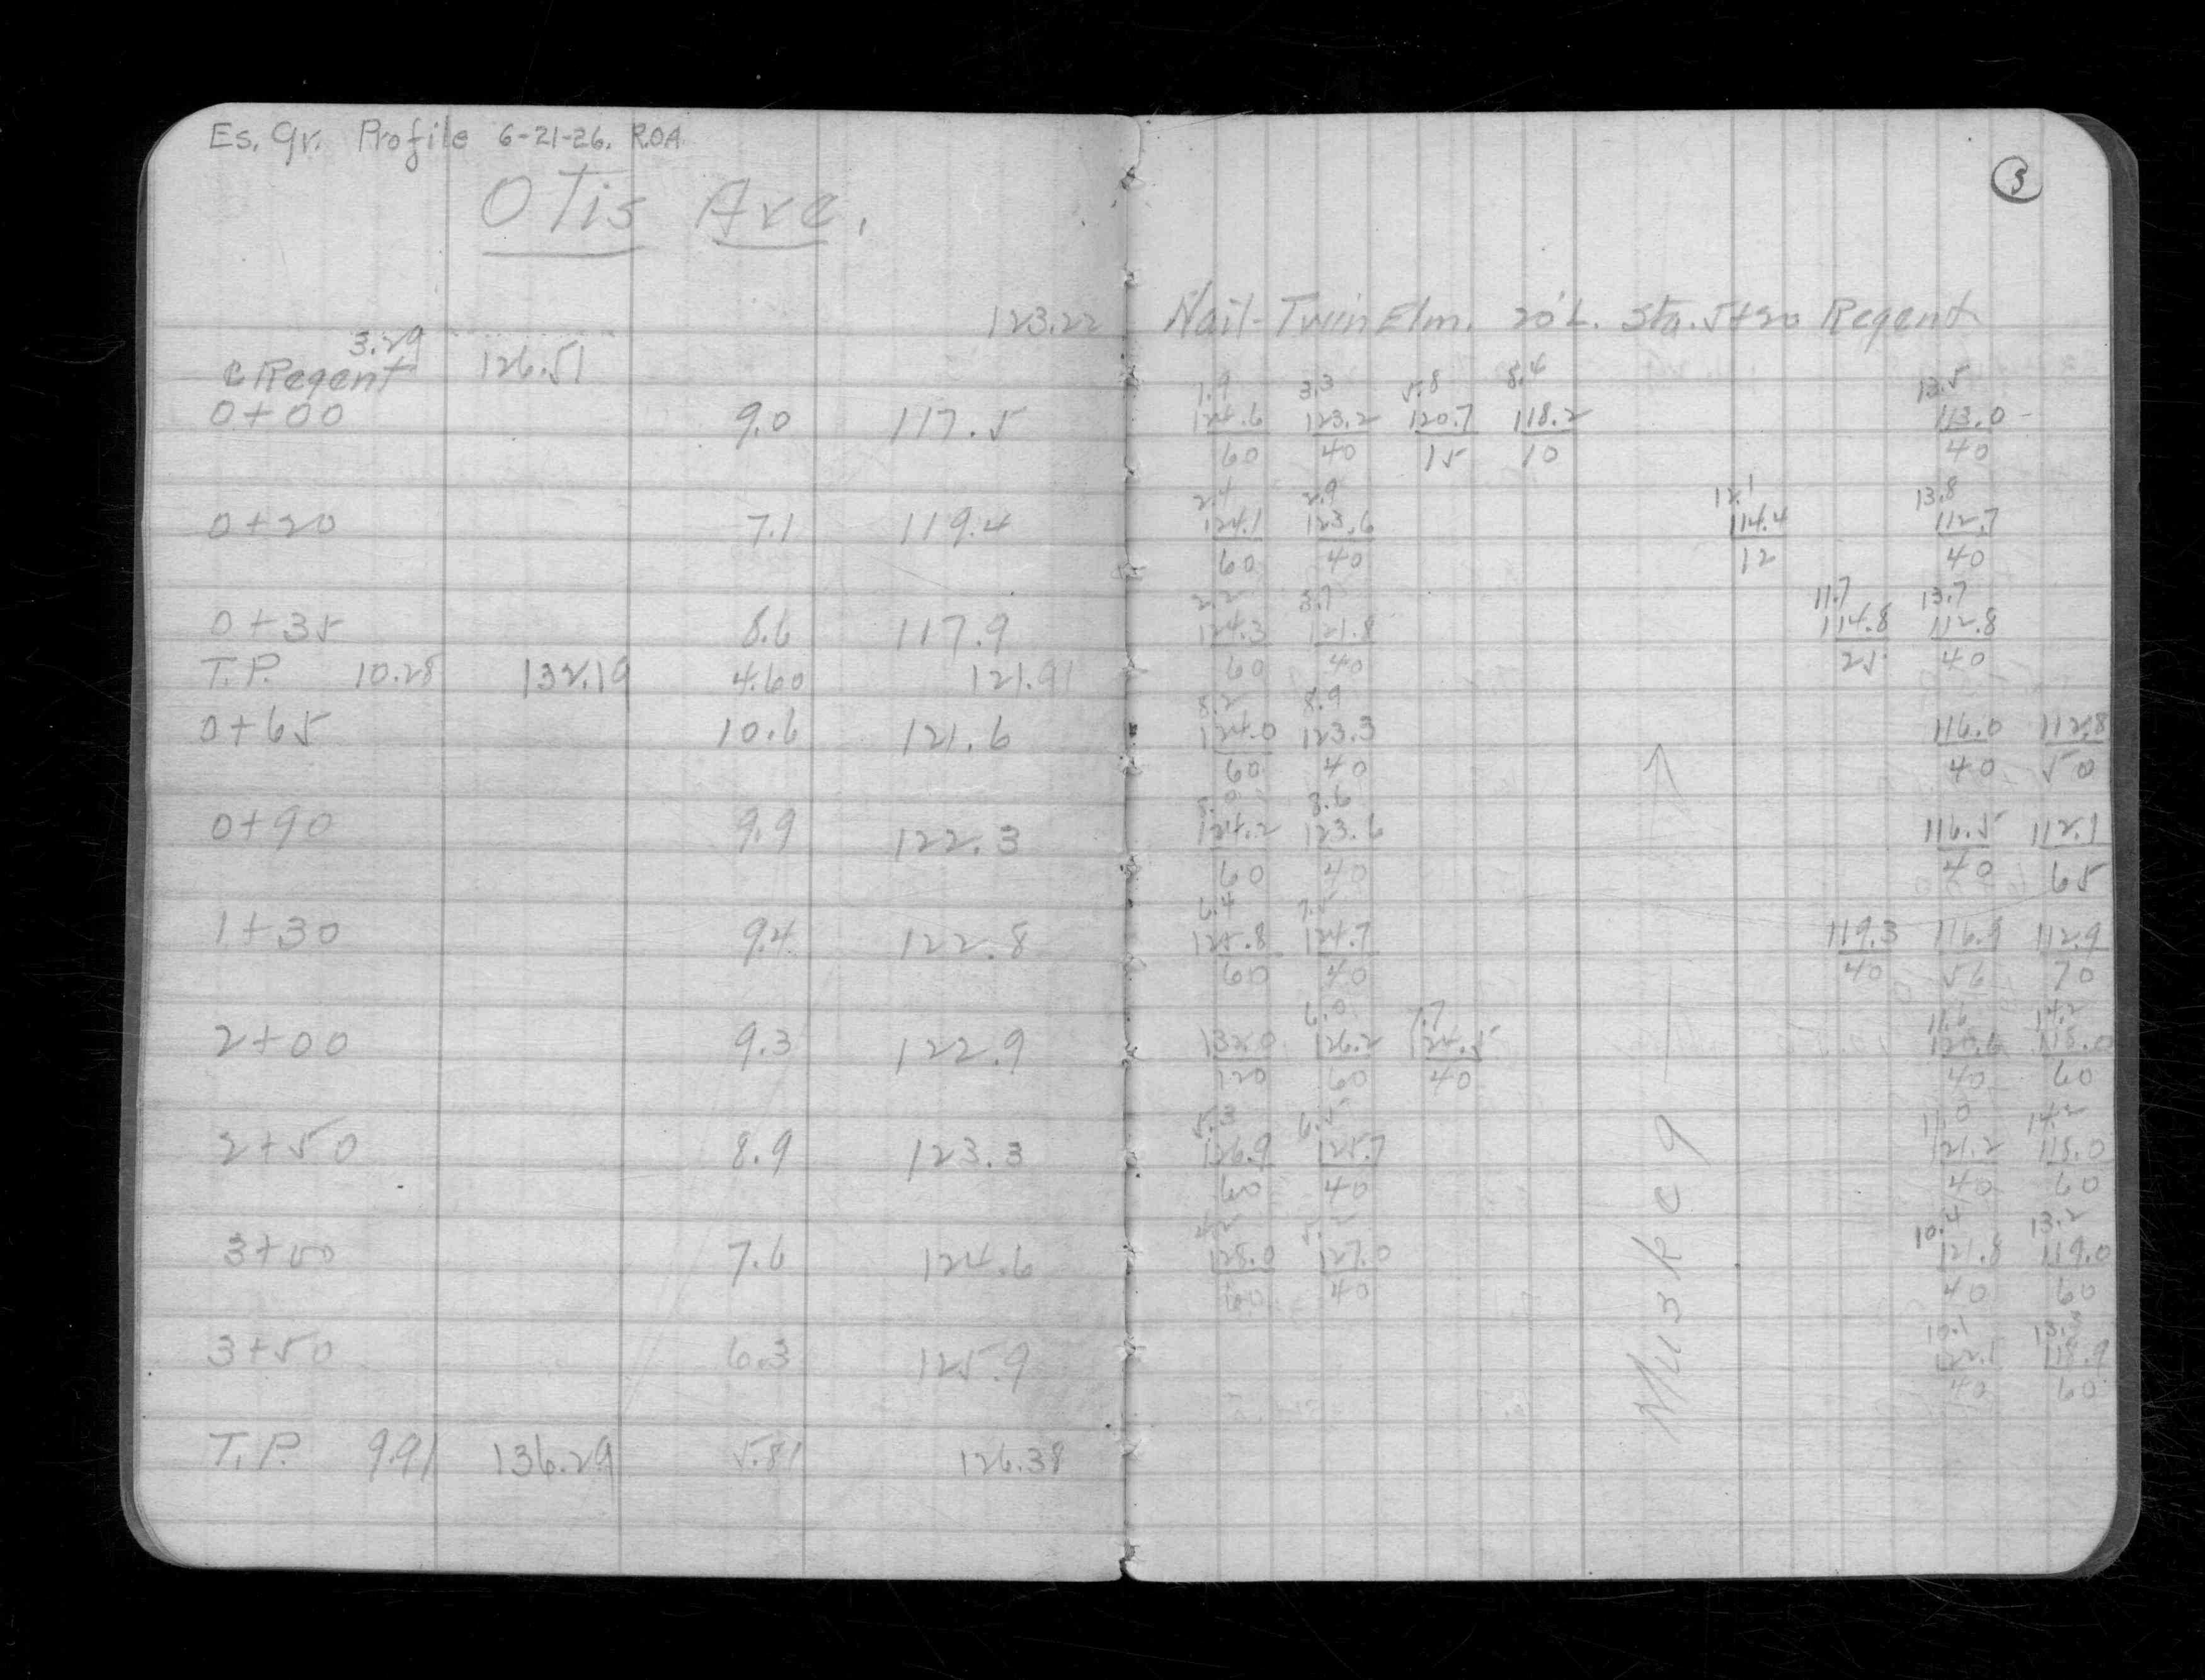 Es. Gr. Profile 6-21-26. R.O.A.
Otis Ave.
3
123.22 Nail - Twin Elm. 20' L. Sta. 5+20 Regent
3.29 126.51
Regent
1.9 3.3 5.8 8.4 13.5
0+00 9.0 117.5 124.6 123.2 120.7 118.2 113.0
60 40 15 10 40
2.4 2.9 12.1 13.8
0+20 7.1 119.4 124.1 123.6 114.4 112.7
60 40 12 40
2.2 3.7 11.7 13.7
0+35 8.6 117.9 124.3 121.8 114.8 112.8
60 40 25 40
T.P. 10.28 132.19 4.60 121.91
8.2 8.9
0+65 10.6 121.6 124.0 123.3 116.0 112.8
60 40 40 50
8.0 8.6
0+90 9.9 122.3 124.2 123.6 116.5 112.1
60 40 40 65
6.4 7.5
1+30 9.4 122.8 125.8 124.7 119.3 116.9 112.9
60 40 40 56 70
6.0 7.7 11.6 14.2
2+00 9.3 122.9 132.0 126.2 124.5 120.6 118.0
120 60 40 40 60
5.3 6.5 11.0 14.2
2+50 8.9 123.3 126.9 125.7 121.2 118.0
60 40 40 60
4.2 5.2 10.4 13.2
3+00 7.6 124.6 128.0 127.0 121.8 119.0
60 40 40 60
10.1 13.3
3+50 6.3 125.9 122.1 118.9
40 60
T.P. 9.91 136.29 5.81 126.38
Muskeg